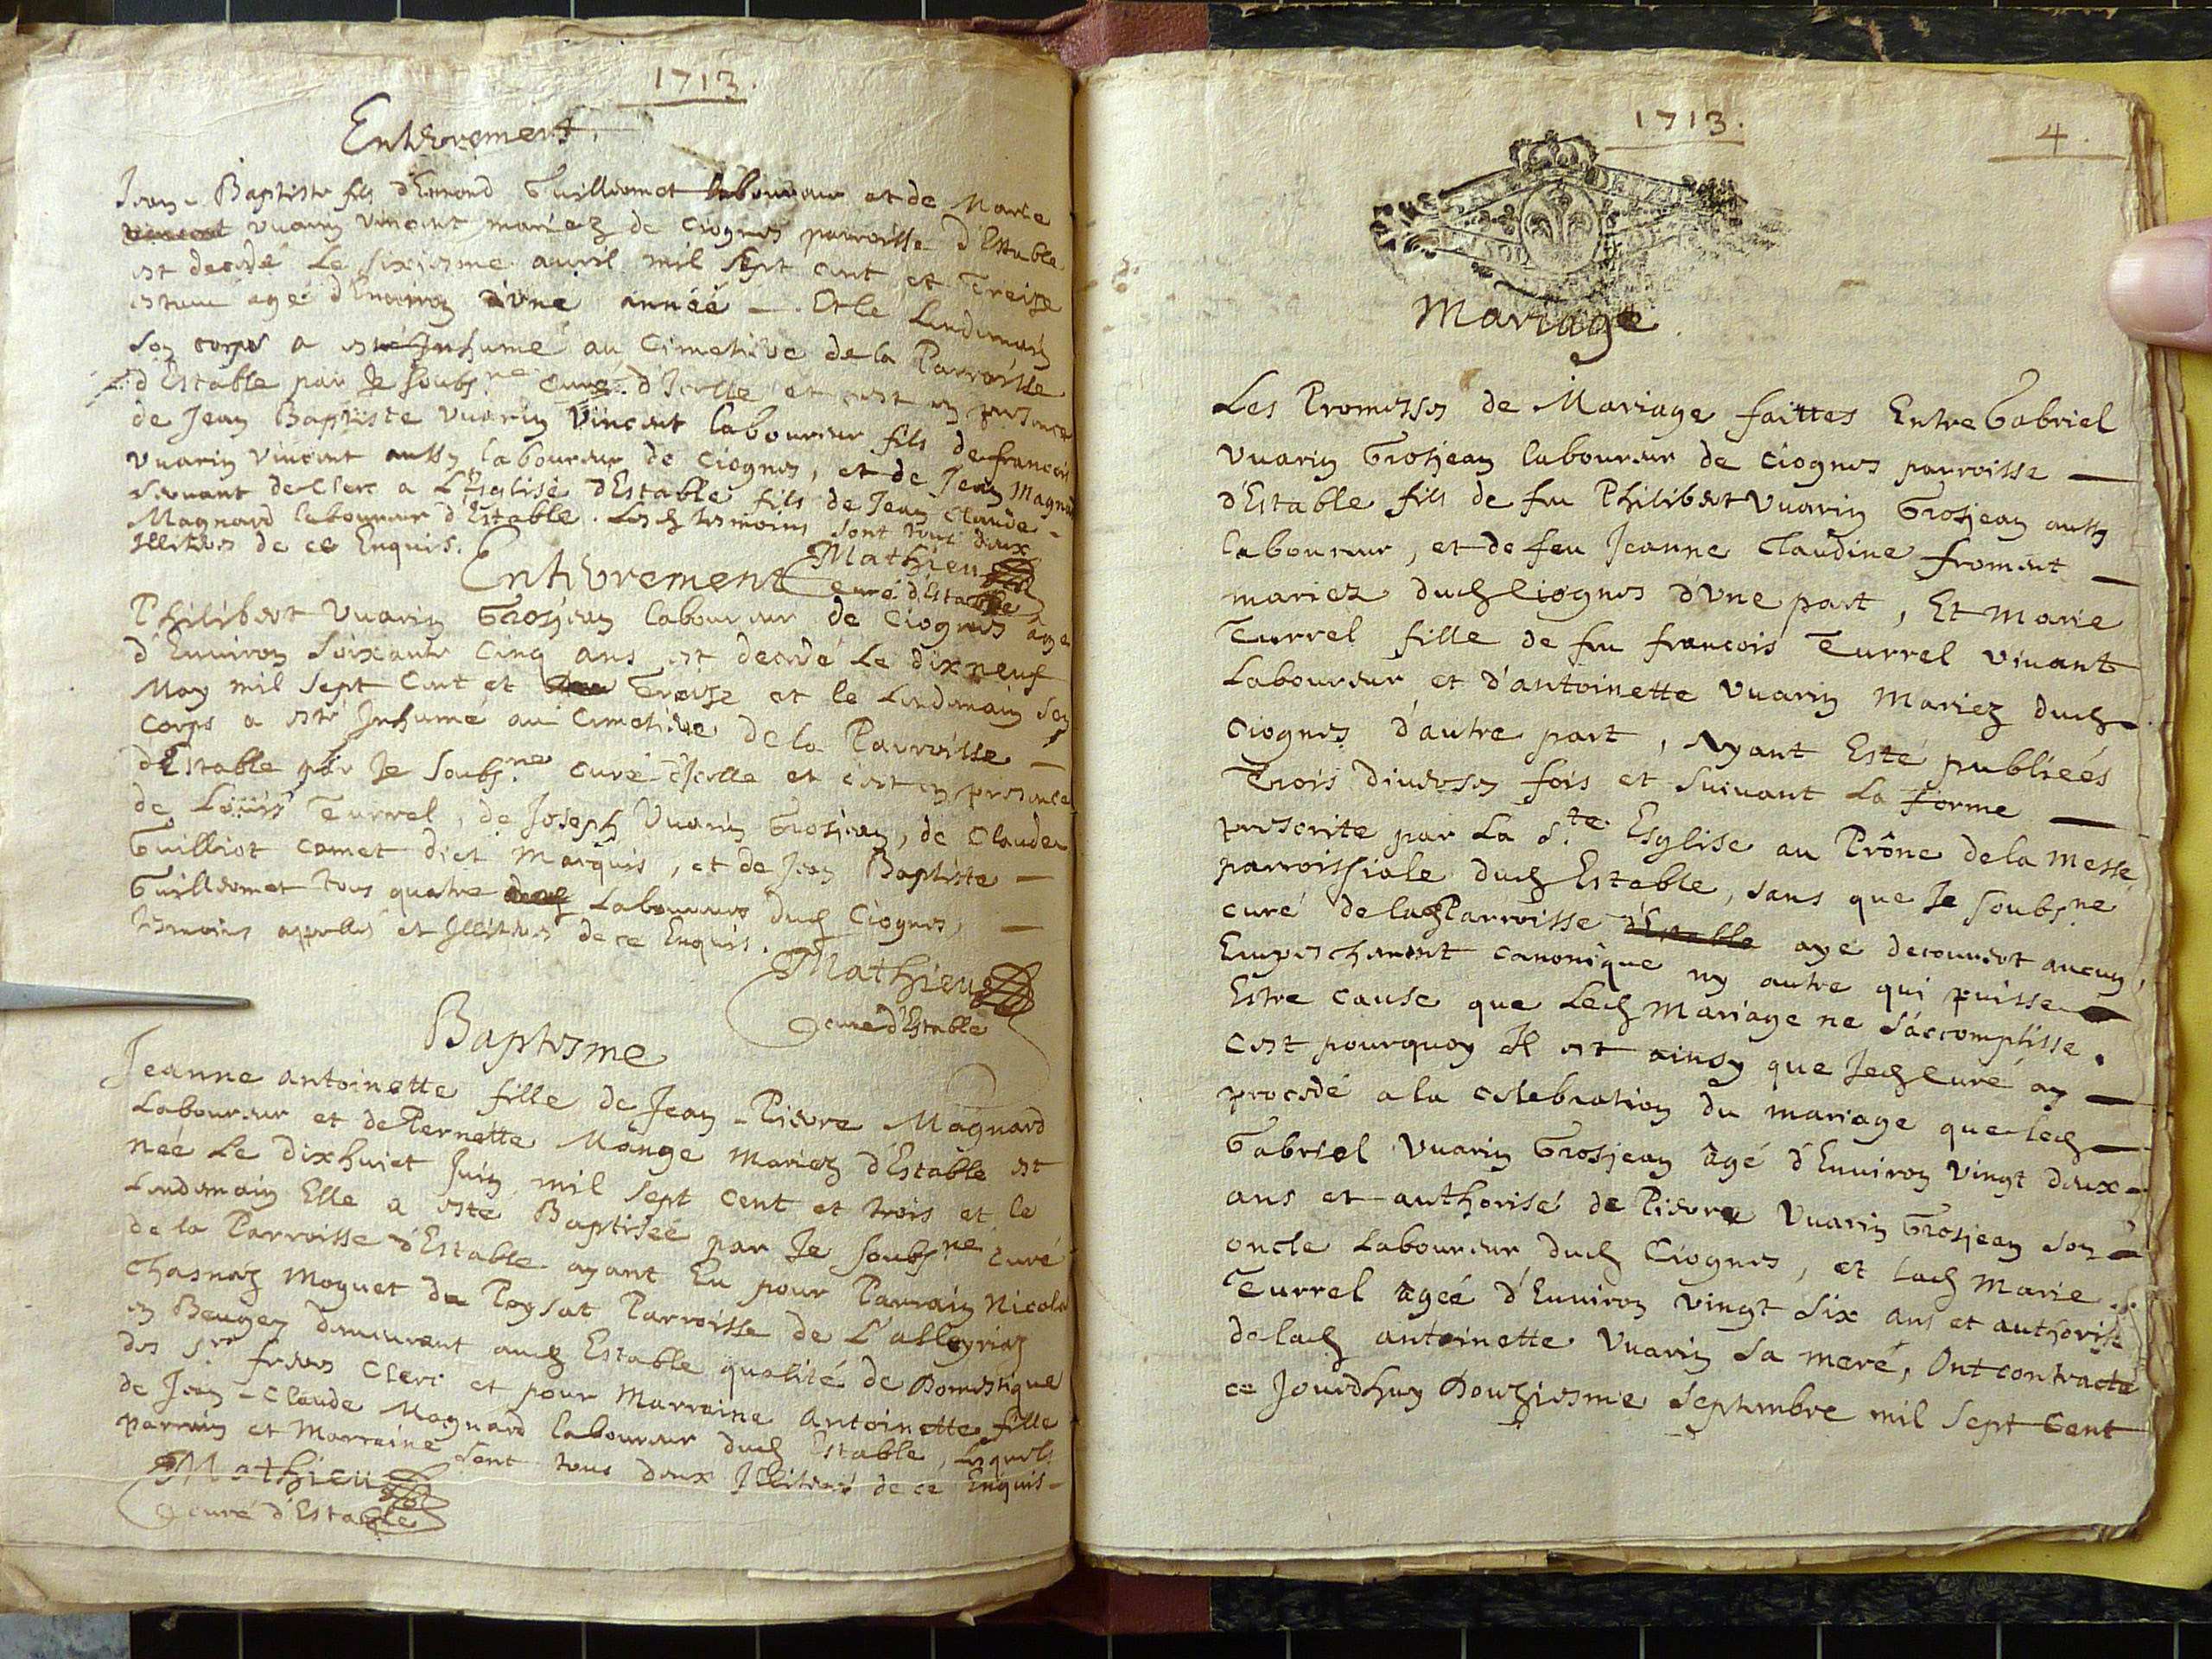 1713.
Enterrement.
Jean-Baptiste fils d'Emond Guilliermet laboureur et de Marie
Vuarin Vincent mariez de Ciognes parroisse d'Estable
est decedé Le sixiesme avril mil sept cent et Treize
estant agé d'Environ d'vne année — . Et le Lendemain
son corps a esté Jnhumé au Cimetiere de la Parroisse
d'Estable par Je soubs.ne curé d'Jcelle et cest en presence
de Jean Baptiste Vuarin Vincent laboureur fils de francois
Vuarin Vincent aussy laboureur de Ciognes, et de Jean Magnard
servant de Clerc a L'Esglise d'Estable fils de Jean Claude -
Magnard laboureur d'Estable. Lesd tesmoins sont tous deux
Jlliteres de ce Enquis.
Mathieu
curé d'Estable
Enterrement
Philibert Vuarin Grosjean laboureur de Ciognes agé
d'Environ soixante Cinq ans est decedé Le dixneuf
May mil sept Cent et Treize et le Lendemain son
Corps a esté Jnhumé au Cimetiere de la Parroisse —
d'Estable par Je soubs.ne curé d'Jcelle et c'est en presence
de Loüis Turrel, de Joseph Vuarin Grosjean, de Claude
Guilliot comet dict Marquis, et de Jean Baptiste —
Guilliermet tous quatre Laboureurs dud Ciognes, —
tesmoins appellés et Jlliteres de ce Enquis.
Mathieu
curé d'Estable
Baptesme
Jeanne antoinette fille de Jean-Pierre Magnard
Laboureur et de Pernette Monge Mariez d'Estable est
née Le dixhuict Juin mil sept Cent et trois et le
Lendemain Elle a esté Baptisée par Je soubs.ne Curé
de la Parroisse d'Estable ayant Eu pour Parrain Nicolas
Chasnaz Moguet du Poysat Parroisse de L'alleyriaz
en Beugey demeurant aud Estable qualité de Domestique
des srs freres Clerc et pour Marraine Antoinette fille
de Jean-Claude Magnard laboureur dud Estable, Lesquels
parrain et Marraine sont tous deux Jlliteres de ce Enquis-
Mathieu
curé d'Estable
1713.
4.
Mariage.
Les Promesses de Mariage faittes Entre Gabriel
Vuarin Grosjean laboureur de Ciognes parroisse —
d'Estable fils de feu Philibert Vuarin Grosjean aussy
laboureur, et de feu Jeanne Claudine froment —
mariez dud Ciognes d'Vne part, Et Marie
Turrel fille de feu francois Turrel vivant
Laboureur et d'antoinette Vuarin Mariez dud
Ciognes d'autre part, Ayant Esté publiées
Trois diverses fois et Suivant La Forme —
prescrite par La S.te Esglise au Prône de la Messe
parroissiale dud Estable, sans que Je soubs.ne
curé de lad Parroisse d'Estable aye decouvert aucun
Empeschement canonique ny autre qui puisse
Estre cause que Led Mariage ne s'accomplisse.
Cest pourquoy Jl est ainsy que Jed Curé ay —
procedé a la Celebration du mariage que led —
Gabriel Vuarin Grosjean agé d'Environ vingt deux
ans et authorisé de Pierre Vuarin Grosjean son
oncle Laboureur dud Ciognes, et lad Marie
Turrel agée d'Environ vingt six ans et authorisée
de lad antoinette Vuarin sa mere, Ont contracté
ce Jourdhuy Douziesme septembre mil sept Cent